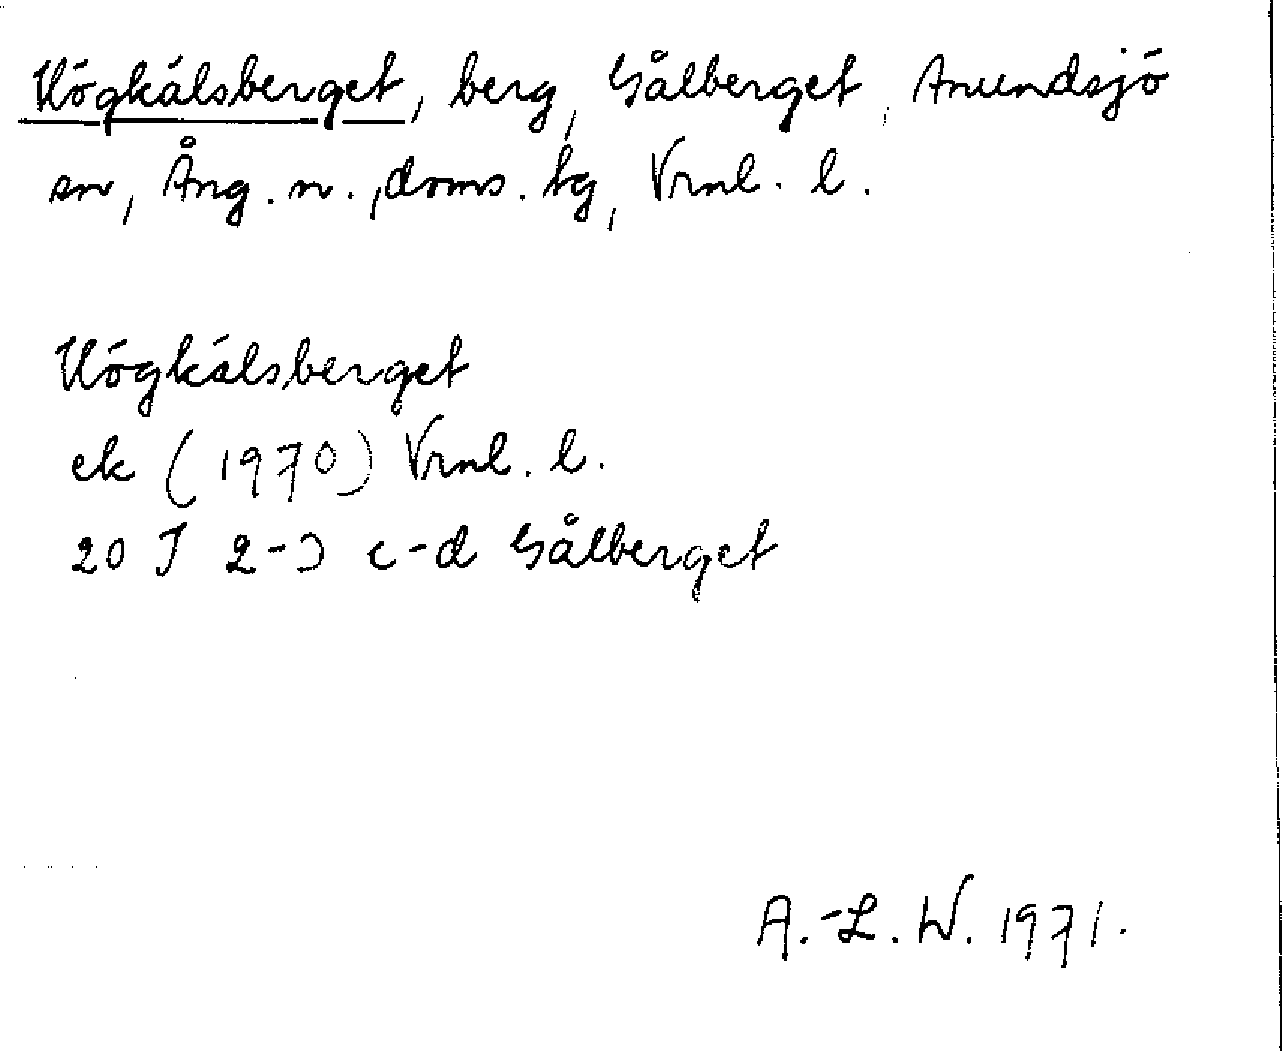 Högkälsberget, berg, Gålberget, Anundsjö
sn, Ång. n., doms. tg, Vrnl. l.
Högkälsberget
ek (1970) Vrnl. l.
20 J 2-3 c-d Gålberget
A.-L. W. 1971.